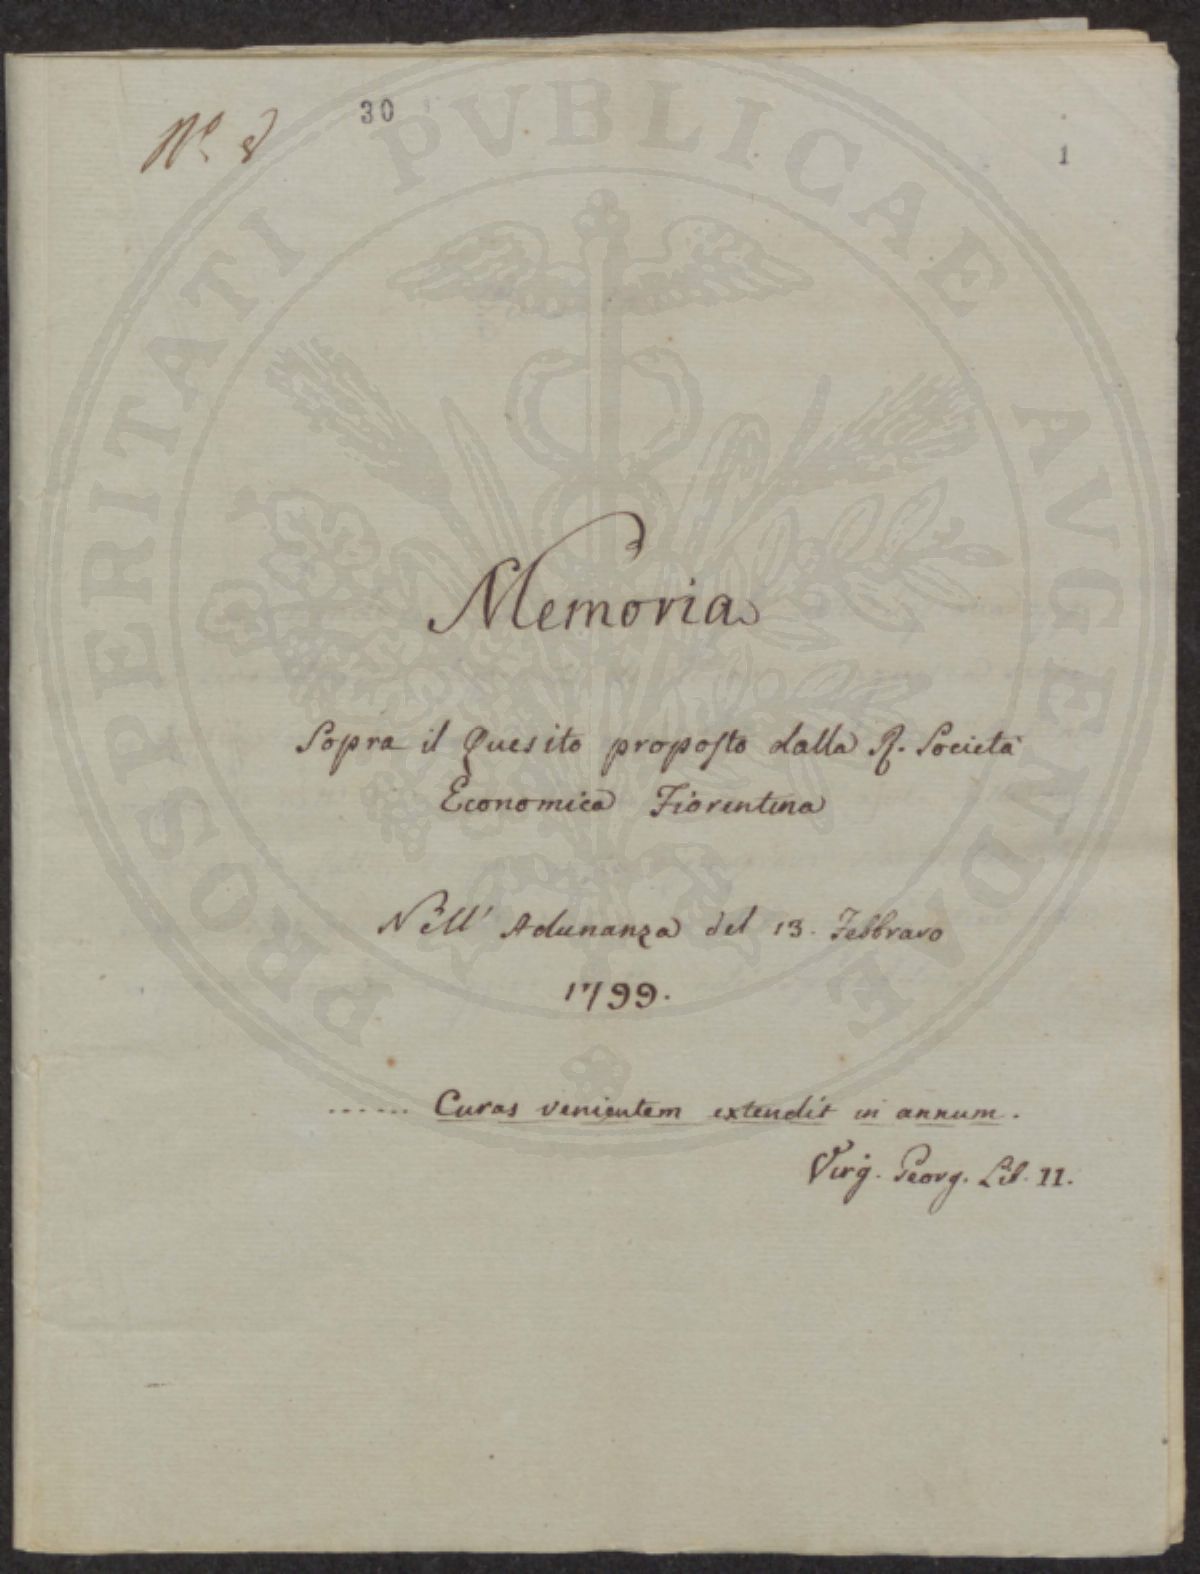 Nº. 8
30
1
PROSPERITATI PVBLICAE AVGENDAE
Memoria
Sopra il Quesito proposto dalla R. Società
Economica Fiorentina
Nell' Adunanza del 13. Febbraro
1799.
...... Curas venientem extendit in annum.
Virg. Georg. Lib. II.